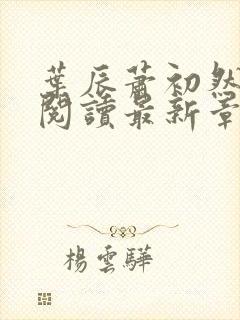 葉辰蕭初然
閱讀最新章
楊雲驊